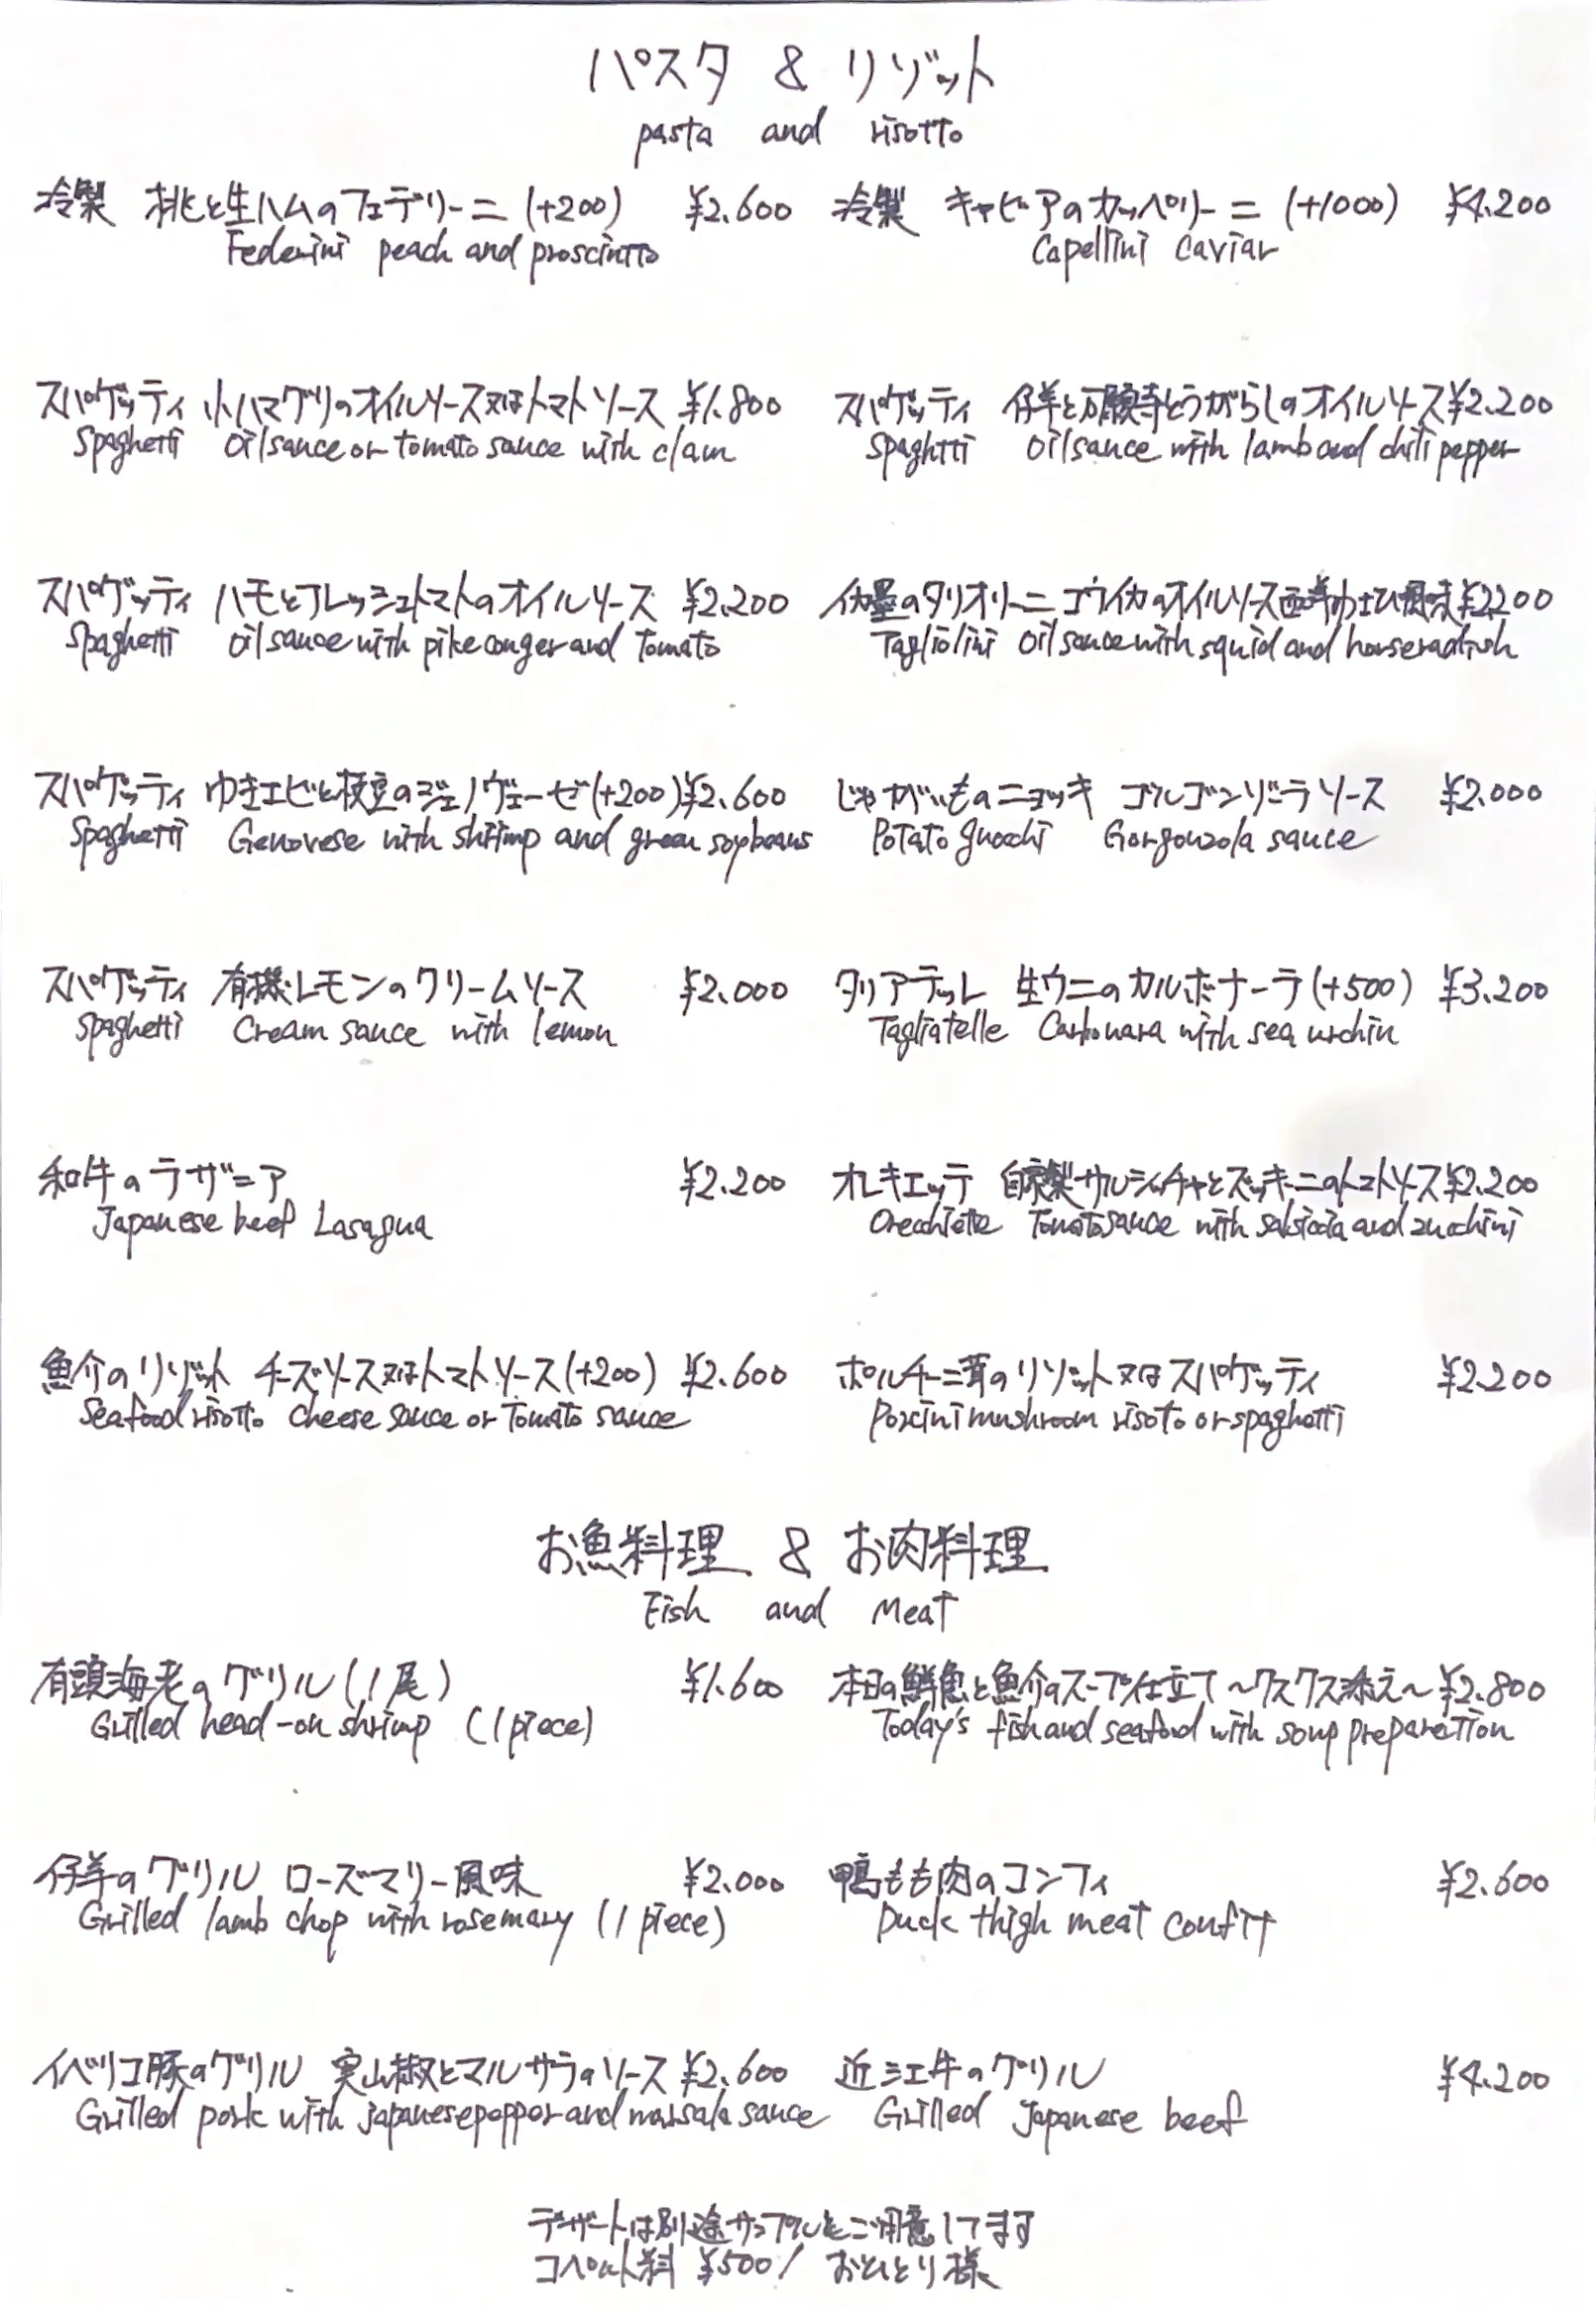 パスタ & リゾット
pasta and risotto
冷製 桃と生ハムのフェデリーニ (+200) ¥2.600
Fedelini peach and prosciutto
冷製 キャビアのカッペリーニ (+1000) ¥4.200
Capellini caviar
スパゲッティ 小ハマグリのオイルソース又はトマトソース ¥1.800
Spaghetti Oil sauce or tomato sauce with clam
スパゲッティ 仔羊と万願寺とうがらしのオイルソース ¥2.200
Spaghtti Oil sauce with lamb and chili pepper
スパゲッティ ハモとフレッシュトマトのオイルソース ¥2.200
Spaghetti Oil sauce with pike conger and tomato
イカ墨のタリオリーニ コウイカのオイルソース西洋わさび風味 ¥2200
Tagliolini Oil sauce with squid and horseradish
スパゲッティ ゆきエビと枝豆のジェノヴェーゼ (+200) ¥2.600
Spaghetti Genovese with shrimp and green soybeans
じゃがいものニョッキ ゴルゴンゾーラソース ¥2.000
Potato gnocchi Gorgonzola sauce
スパゲッティ 有機レモンのクリームソース ¥2.000
Spaghetti Cream sauce with lemon
タリアテッレ 生ウニのカルボナーラ (+500) ¥3.200
Tagliatelle Carbonara with sea urchin
和牛のラザニア ¥2.200
Japanese beef Lasagna
オレキエッテ 自家製サルシッチャとズッキーニのトマトソース ¥2.200
Orecchiette Tomato sauce with salsiccia and zucchini
魚介のリゾット チーズソース又はトマトソース (+200) ¥2.600
Seafood risotto Cheese sauce or Tomato sauce
ポルチーニ茸のリゾット又はスパゲッティ ¥2.200
Porcini mushroom risoto or spaghetti
お魚料理 & お肉料理
Fish and Meat
有頭海老のグリル (1尾) ¥1.600
Grilled head-on shrimp (1piece)
本日の鮮魚と魚介のスープ仕立て ～クスクス添え～ ¥2.800
Today's fish and seafood with soup preparation
仔羊のグリル ローズマリー風味 ¥2.000
Grilled lamb chop with rosemary (1 piece)
鴨もも肉のコンフィ ¥2.600
Duck thigh meat confit
イベリコ豚のグリル 実山椒とマルサラのソース ¥2.600
Grilled pork with japanese pepper and marsala sauce
近江牛のグリル ¥4.200
Grilled Japanese beef
デザートは別途サンプルをご用意してます
コペルト料 ¥500/ おひとり様